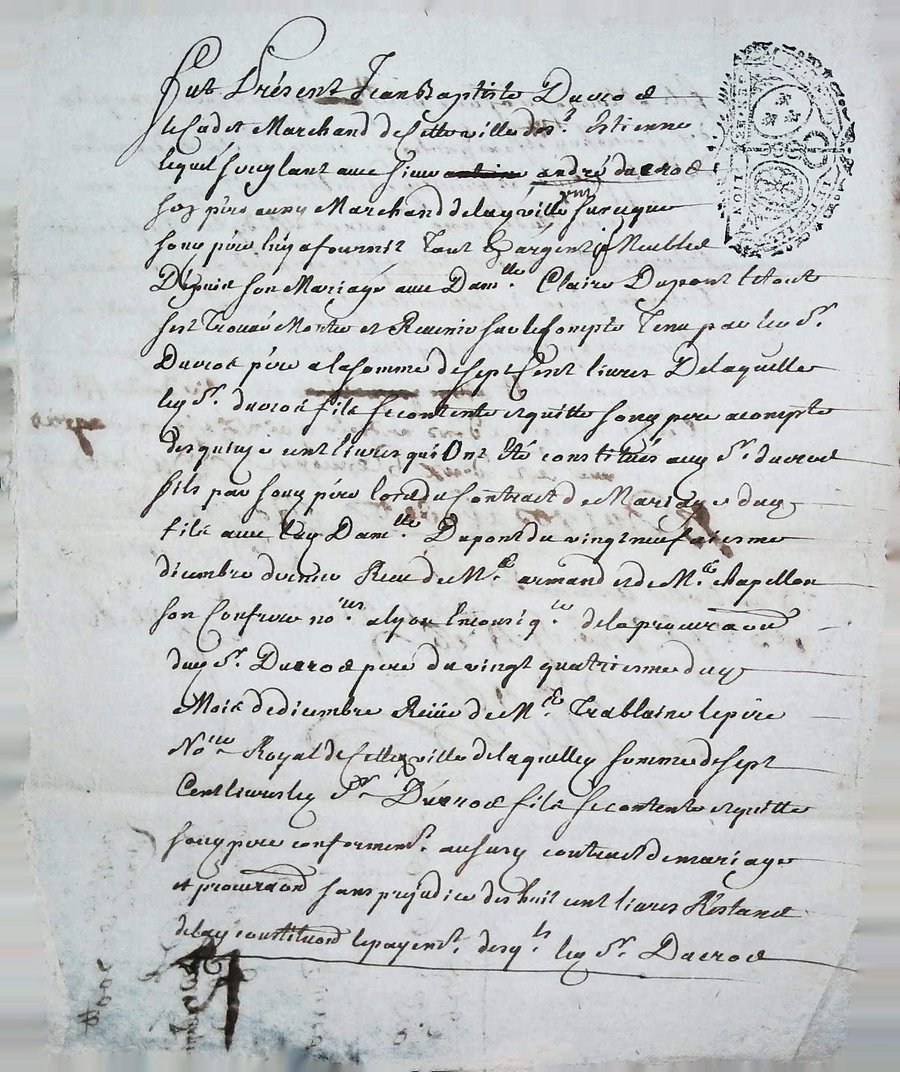 Fut Présent Jean Baptiste Ducros
le Cadet Marchand de Cette ville de St. Estienne
lequel sur andré ducros
son père aussy Marchand de lad ville sur ce que
sond père luy a fournit Tant En argent q Meubles
Depuis son Mariage avec Damlle. Claire Dupont le tout
sest Trouvé Monter et Revenir sur le Compte Tenu par led Sr.
Ducros père a la somme de sept Cent livres De laquelle
led Sr. ducros fils se contente et quitte sond pere a compte
des quinze cent livres qui Ont Eté constitués aud Sr. ducros
fils par sond père lors du Contract de Mariage dud
fils avec lad Damlle. Dupont du vingt neufviesme
décembre dernier Receu de Me. armand et de Me. chapellon
son Confrere nores. a lyon de la procuraon
dud Sr. Ducros pere du vingt quatriesme dud
Mois de décembre Reçüe de Me. Trablaine le père
Nore. Royal de Cette ville de laquelle somme de sept
Cent livres led Sr. Ducros fils se contente et quitte
sond pere conforment. au susd contract de mariage
et procuraon sans prejudice des huit cent livres Restant
de lad constituon le payent. desqls led Sr. Ducros
LYON